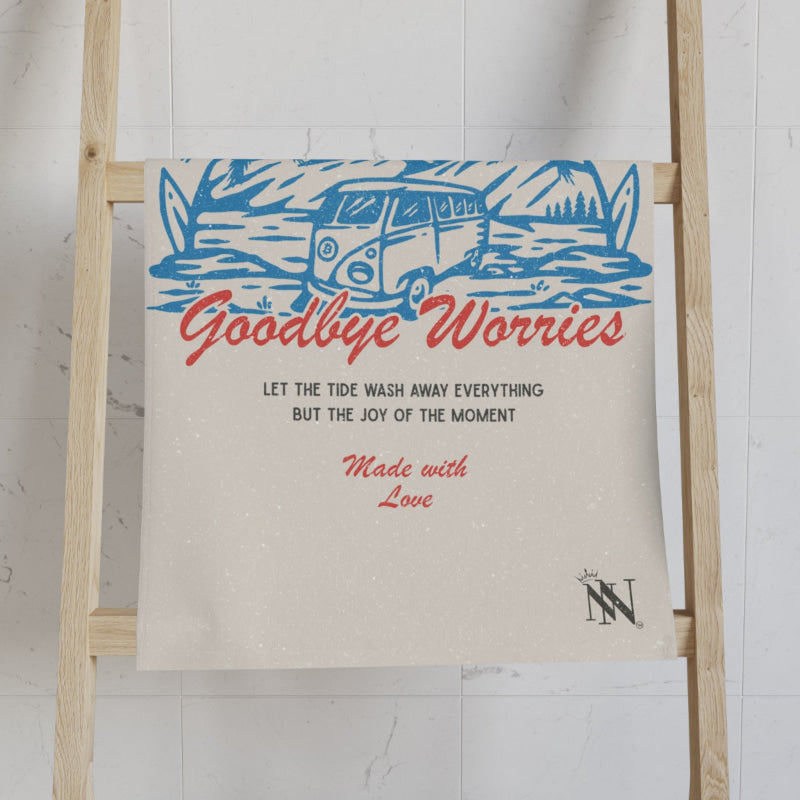 Goodbye Worries
LET THE TIDE WASH AWAY EVERYTHING
BUT THE JOY OF THE MOMENT
Made with
Love
NN